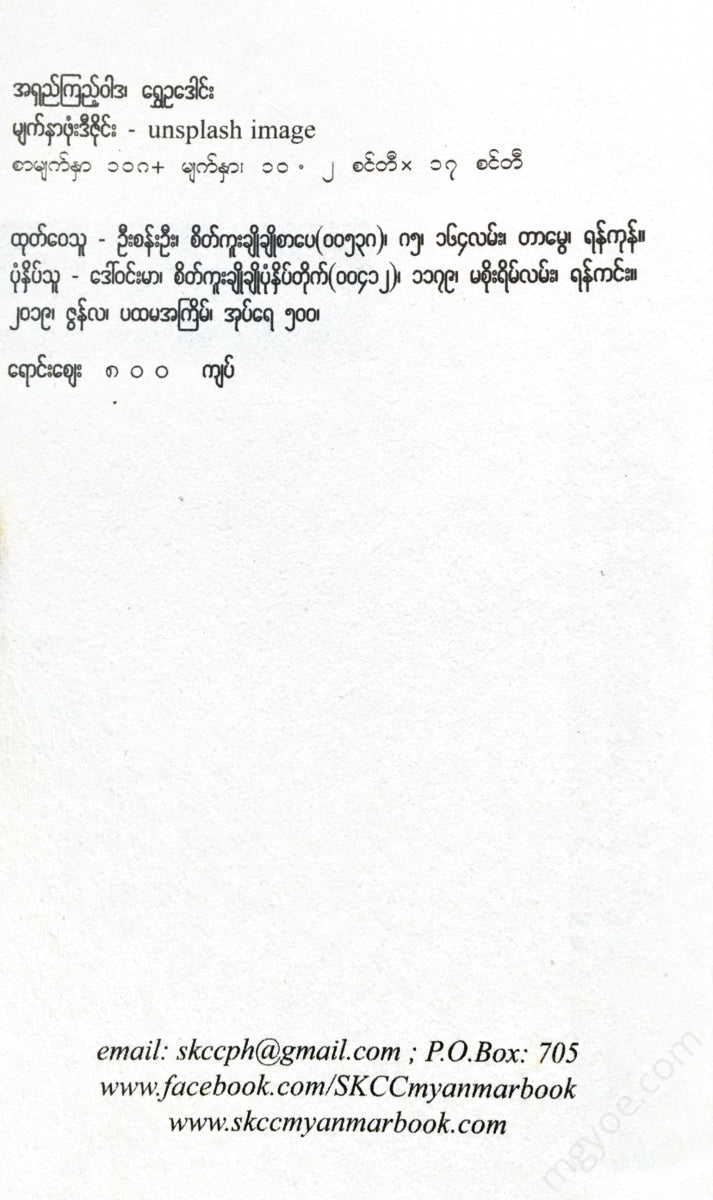 အရှည်ကြည့်ဝါဒ၊ ရွှေဥဒေါင်း
မျက်နှာဖုံးဒီဇိုင်း - unsplash image
စာမျက်နှာ ၁၀ဂ+ မျက်နှာ၊ ၁၀ . ၂ စင်တီ× ၁၇ စင်တီ
ထုတ်ဝေသူ - ဦးစန်းဦး၊ စိတ်ကူးချိုချိုစာပေ(၀၀၅၃၈)၊ ဂ၅၊ ၁၆၄လမ်း၊ တာမွေ၊ ရန်ကုန်။
ပုံနှိပ်သူ - ဒေါ်ဝင်းမာ၊ စိတ်ကူးချိုချိုပုံနှိပ်တိုက်(၀၀၄၁၂)၊ ၁၁၇၉၊ မစိုးရိမ်လမ်း၊ ရန်ကင်း။
၂၀၁၉၊ ဇွန်လ၊ ပထမအကြိမ်၊ အုပ်ရေ ၅၀၀၊
ရောင်းဈေး ၈ ၀ ၀ ကျပ်
email: skccph@gmail.com ; P.O.Box: 705
www.facebook.com/SKCCmyanmarbook
www.skccmyanmarbook.com
mgyoe.com